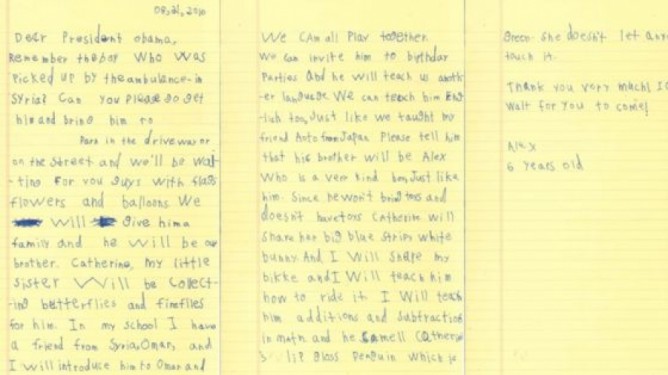 08,21,2016
Dear President obama,
Remember the boy who was
picked up by the ambulance in
Syria? Can you please go get
him and bring him to
Park in the driveway or
on the street and we'll be wai-
-ting for you guys with flags
flowers and balloons. We
will give him a
family and he will be our
brother. Catherine, my little
sister will be collect-
ing butterflies and fireflies
for him. In my school I have
a friend from Syria, Omar, and
I will introduce him to Omar and
We can all play together.
We can invite him to birthday
parties and he will teach us anoth-
-er language. We can teach him Eng-
lish too, Just like we taught my
friend Aoto from Japan. Please tell him
that his brother will be Alex
Who is a very kind boy, Just like
him. Since he won't bring toys and
doesn't have toys Catherine will
share her big blue stripy white
bunny. And I will share my
bikke and I will teach him
how to ride it. I will teach
him additions and subtractions
in math and he smell Catherine
li glass Penguin which is
green. She doesn't let any
touch it.
Thank you very much! I
wait for you to come!
Alex
6 years old